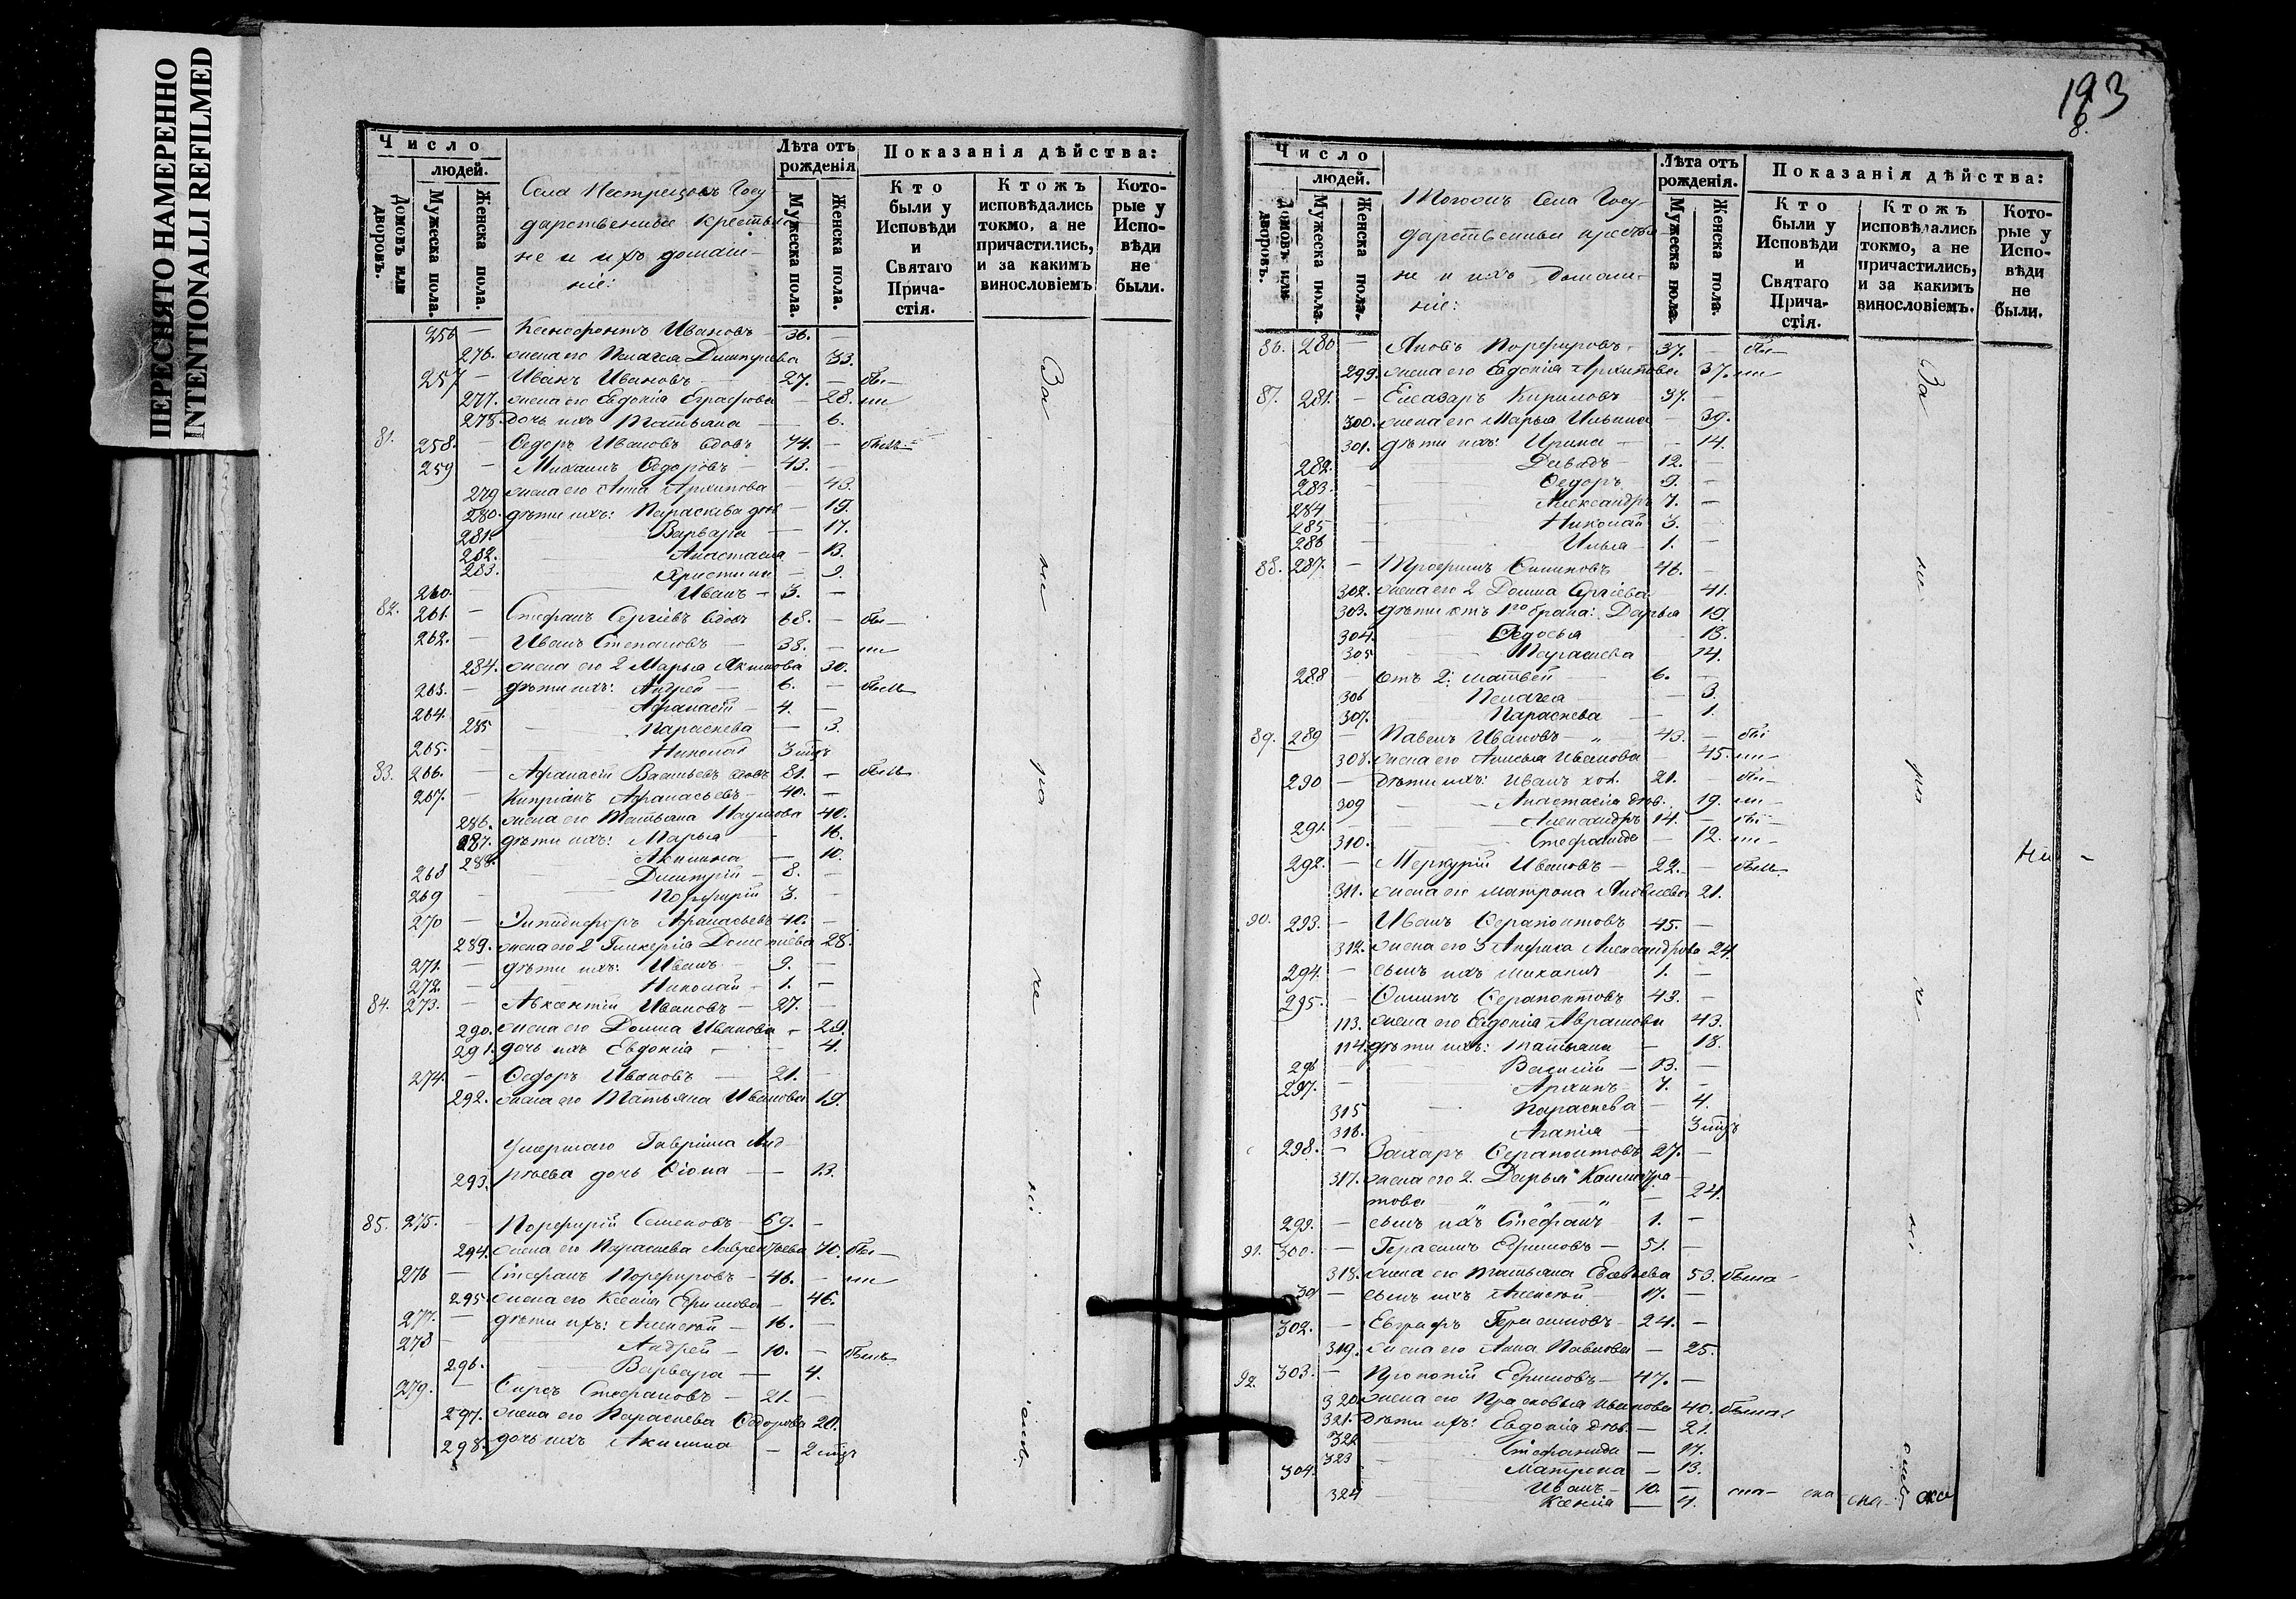 ПЕРЕСНЯТО НАМЕРЕННО
INTENTIONALLI REFILMED
Число
людей.
Домовъ или дворовъ.
Мужеска пола.
Женска пола.
Села Пестрецовъ Госу-
дарственные крестья-
не и ихъ домаш-
ніе:
Лѣта отъ рожденія
Мужеска пола.
Женска пола.
Показанія дѣйства:
Кто были у Исповѣди и Святаго Прича-стія.
Ктожъ исповѣдались токмо, а не причастились, и за какимъ винословіемъ
Кото-рые у Испо-вѣди не были.
256 — Ксенофонтъ Ивановъ 36. —
276. жена его Пелагея Димитріева 33.
257 — Иванъ Ивановъ 27. — бы—
277. жена его Евдокія Еграфова — 28. ли
278. дочь ихъ Татьяна — 6.
81. 258. — Ѳедоръ Ивановъ вдовъ 74. — былъ
259 — Михаилъ Ѳедоровъ 43. —
279 жена его Анна Архипова — 43.
280. дѣти ихъ: Параскева дѣв. — 19.
281. Варвара — 17.
282. Анастасія — 13.
283. Христина — 9.
260. — Иванъ — 3. —
82. 261. — Стефанъ Сергіевъ вдовъ 68. — бы—
262. — Иванъ Степановъ — 38. — ли
284. жена его 2 Марья Якимова 30.
263. — дѣти ихъ: Андрей — 6. — былъ
264. Афанасій — 4. —
285 Параскева — 3.
265. — Николай 3 мѣс
83. 266. — Афанасій Васильевъ вдовъ 81. — былъ
267. — Кипріанъ Афанасьевъ — 40. —
286. жена его Татьяна Наумова 40.
287. дѣти ихъ: Марья — 16.
288. Акилина — 10.
268 Димитрій — 8. —
269 Порфирій 3. —
270 — Эпидифоръ Афанасьевъ 40. —
289. жена его 2 Гликерія Дометіева 28.
271. — дѣти ихъ: Иванъ — 9. —
272. Николай — 1. —
84. 273. — Авксентій Ивановъ — 27. —
290. жена его Домна Иванова — 29.
291. дочь ихъ Евдокія — 4.
274. — Ѳедоръ Ивановъ — 21. —
292. жена его Татьяна Иванова 19.
Умершаго Гавріила Анд-
293. реева дочь Ѳіона — 13.
85. 275. — Порфирій Семеновъ — 69. —
294. жена его Параскева Лаврентьева 70. бы—
276 — Стефанъ Порфировъ — 46. — ли
295. жена его Ксенія Ефимова — 46.
277. — дѣти ихъ: Алексѣй — 16. —
278 — Андрей — 10. — былъ
296. Варвара — 4.
279. — Карпъ Стефановъ — 21. —
297. жена его Параскева Ѳедорова 20.
298. дочь ихъ Акилина — 2 мѣс
За ма ло лѣ
193
8.
Число
людей.
Домовъ или дворовъ.
Мужеска пола.
Женска пола.
Тогожъ Села Госу-
дарственныи крестья-
не и ихъ домаш-
ніе:
Лѣта отъ рожденія.
Мужеска пола.
Женска пола.
Показанія дѣйства:
Кто были у Исповѣди и Святаго Прича-стія.
Ктожъ исповѣдались токмо, а не причастились, и за какимъ винословіемъ.
Кото-рые у Испо-вѣди не были.
86. 280 — Яковъ Порфировъ 37. — бы—
299. жена его Евдокія Архипова 37. ли
87. 281. — Елеазаръ Кириловъ 37. —
300. жена его Марья Ильина — 39.
301. дѣти ихъ: Ирина — 14.
282. Давыдъ — 12. —
283. Ѳедоръ 9. —
284 Александръ 7. —
285 Николай 3. —
286 Илья — 1. —
88. 287. — Трофимъ Силиновъ 46. —
302. жена его 2 Домна Сергіева 41.
303. дѣти отъ 1го брака: Дарья 19.
304. Ѳедосья 18.
305 Параскева 14.
288 — отъ 2: Матвей — 6. —
306 Пелагея — 3.
307. Параскева — 1.
89. 289 — Павелъ Ивановъ — „ — 43. — бы
308. жена его Анисья Иванова — 45. ли—
290 — дѣти ихъ: Иванъ хол. 21. — бы—
309 Анастасія дѣв. 19. ли—
291. Александръ 14. — бы—
310. Стефанида — 12. ли—
292. — Меркурій Ивановъ — 22. — былъ
311. жена его Матрона Яковлева 21.
90. 293. — Иванъ Серапіонтовъ 45. —
312. жена его 3 Анфиса Александрова 24.
294. — сынъ ихъ Михаилъ 1. —
295. — Осипъ Серапонтовъ 43. —
113. жена его Евдокія Аврамова 43.
114. дѣти ихъ: Татьяна — 18.
296 Василій — 13. —
297. Архипъ — 7. —
315 Параскева — 4.
316. Агапія — 3 мѣс
298. — Захаръ Серапонтовъ 27. —
317. жена его 2. Дарья Каллистра-
това — 24.
299. — сынъ ихъ Стефанъ — 1. —
91. 300. — Герасимъ Ефимовъ — 51. —
318. жена его Татьяна Евсѣева 53. была
301 — сынъ ихъ Алексѣй — 17. —
302. — Евграфъ Герасимовъ — 24. —
319. жена его Анна Павлова — 25.
92. 303. — Прокопій Ефимовъ — 47. —
320. жена его Прасковья Иванова 40. была
321. дѣти ихъ: Евдокія дѣв. — 21.
322 Стефанида — 17.
323 Матрона — 13.
304. Иванъ — 10. —
324 Ксенія — 4.
За ма ло лѣ